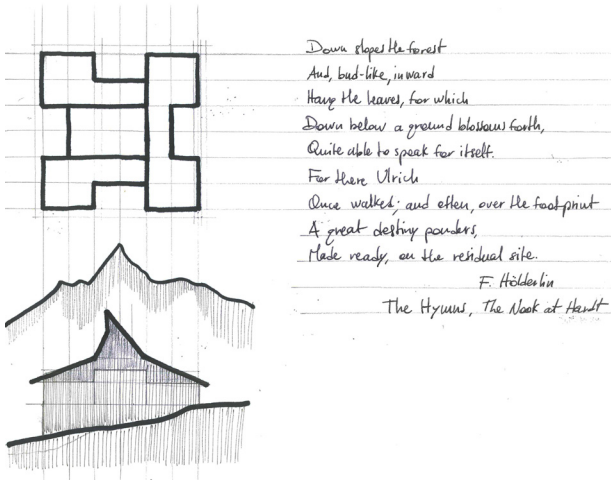 Down slopes the forest
And, bud-like, inward
Hang the leaves, for which
Down below a ground blossoms forth,
Quite able to speak for itself.
For there Ulrich
Once walked; and often, over the footprint
A great destiny ponders,
Made ready, on the residual site.
F. Hölderlin
The Hymns, The Nook at Hardt